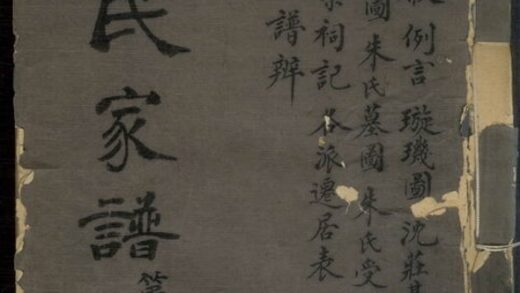 例言 璇璣圖 沈莊
圖 朱氏墓圖 朱氏受
祠記 各派遷居表
譜辨
氏家譜
第